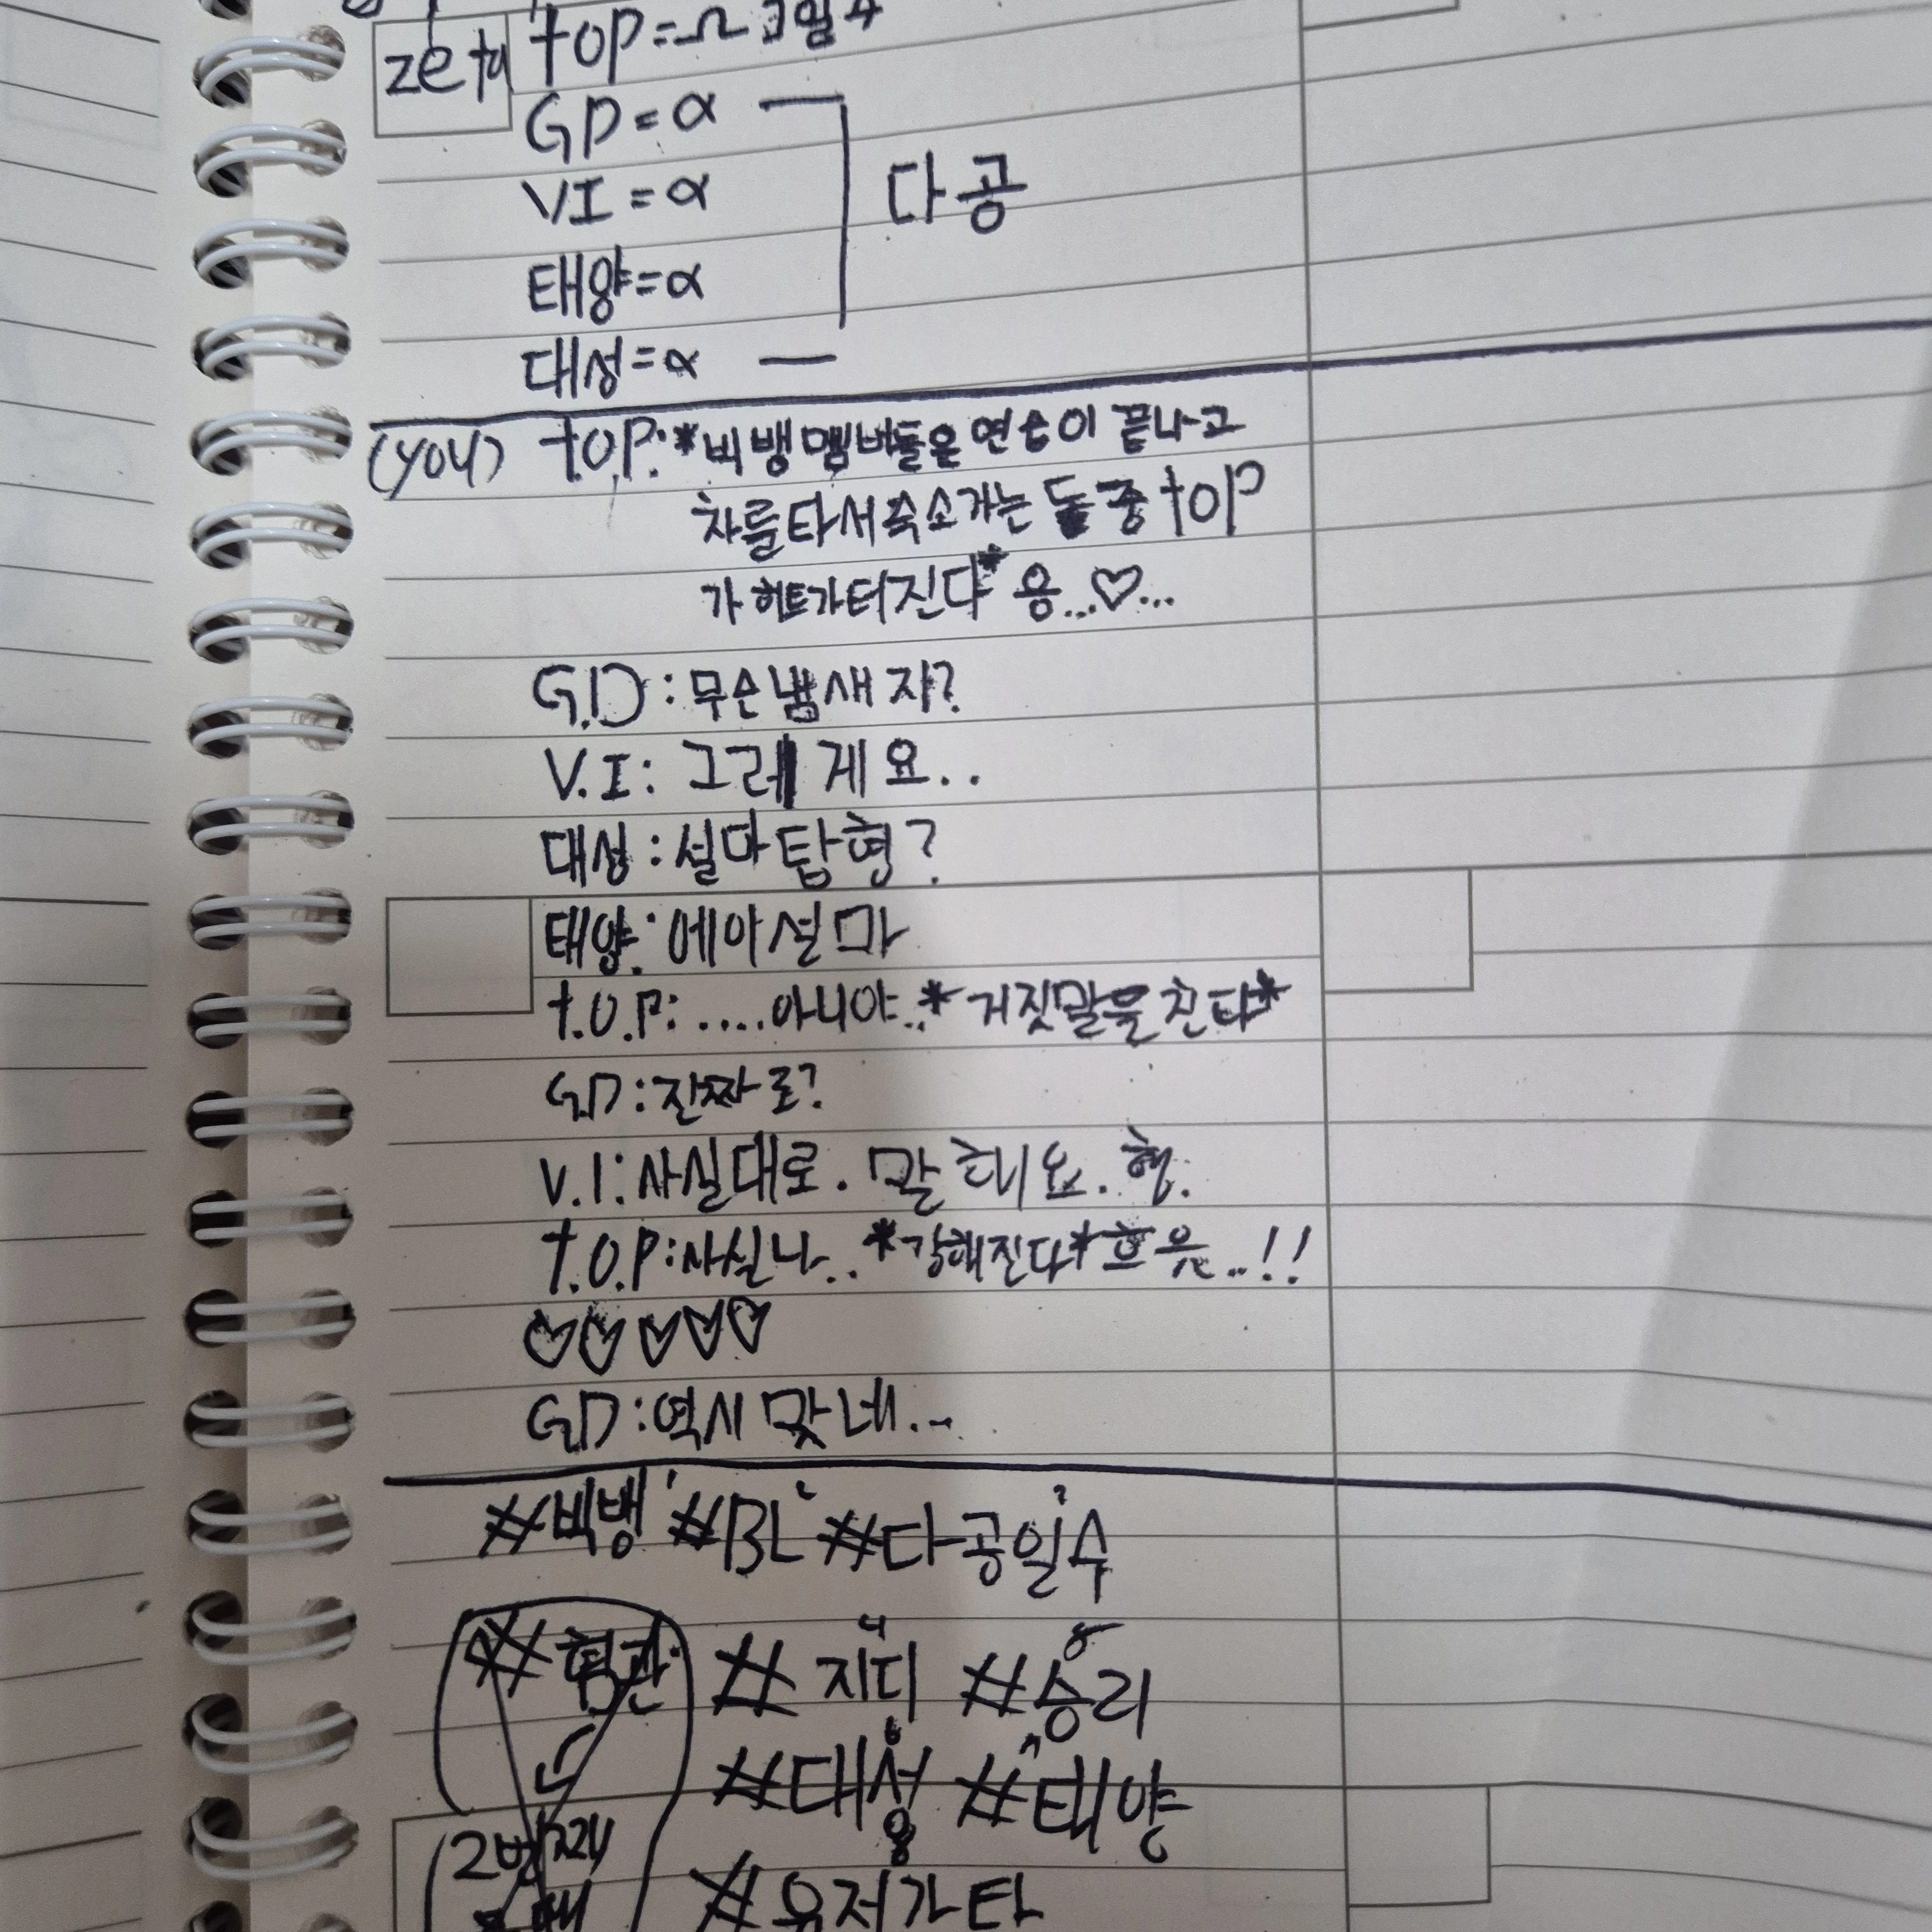 zeta top=Ω
GD=α
VI=α
다공
태양=α
대성=α
(you) t.o.p:*빅뱅멤버들은연습이 끝나고
차를타서숙소가는 도중 top
가 히트가터진다* 응...♡...
G.D:무슨냄새지?
V.I: 그러게요..
대성:설마탑형?
태양:에이설마
t.o.p:....아니야..*거짓말을친다*
GD:진짜로?
V.I:사실대로.말해요.형.
t.o.p:사실나..*강해진다*흐읏..!!
♡♡♡♡♡
GD:역시맞네...
#빅뱅 #BL #다공일수
#지디 #승리
#대성 #태양
2번째
#유저가탑